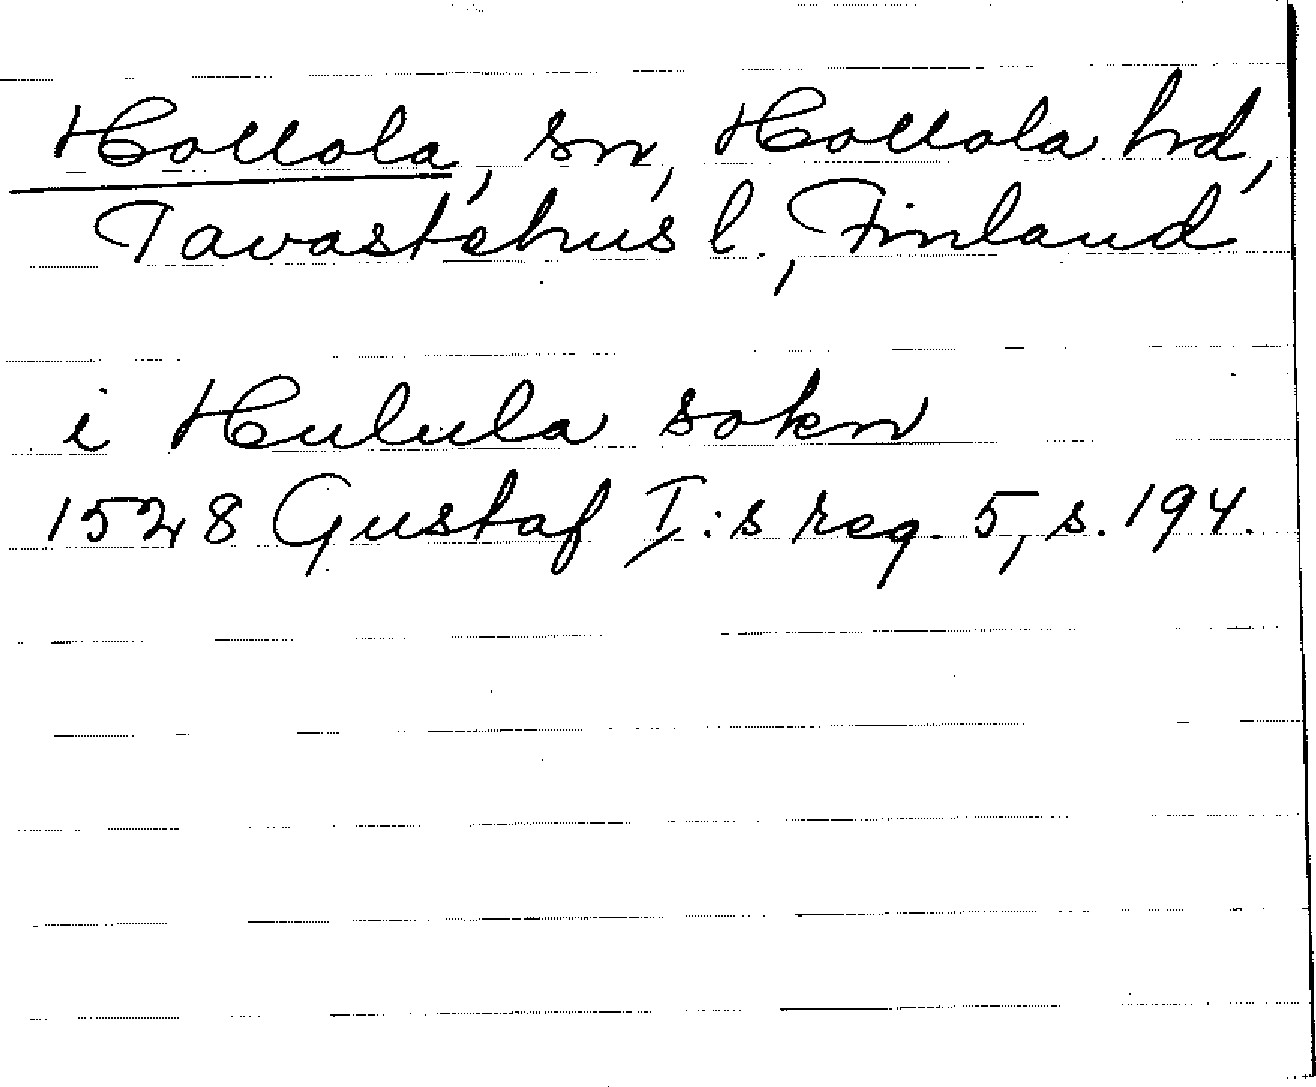 Hollola, sn, Hollola hd,
Tavastehus l., Finland
i Hulula sokn
1528 Gustaf I:s reg. 5, s. 194.